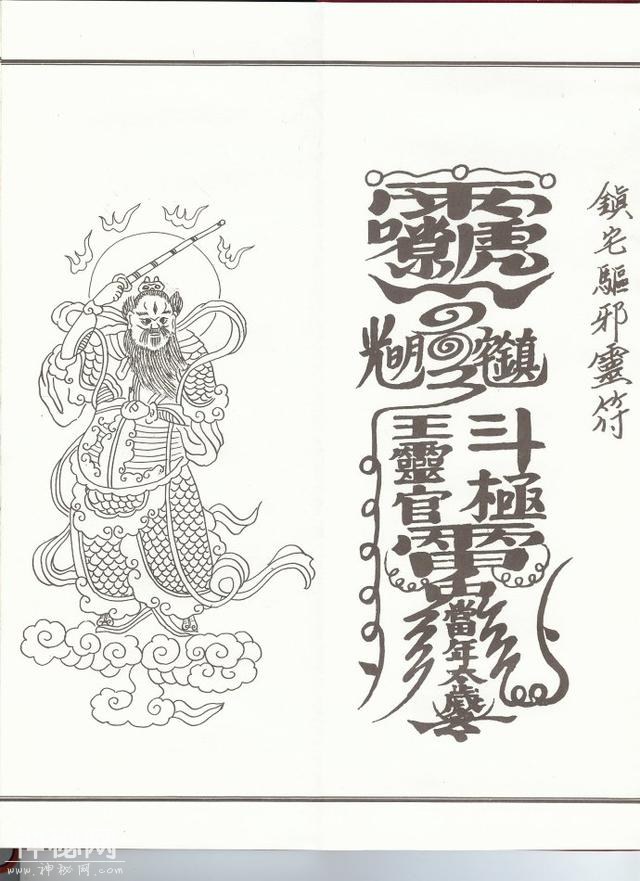 鎮宅驅邪靈符
光明
鎮宅
斗極
王靈官
當年太歲
神秘网
www.神秘网.com